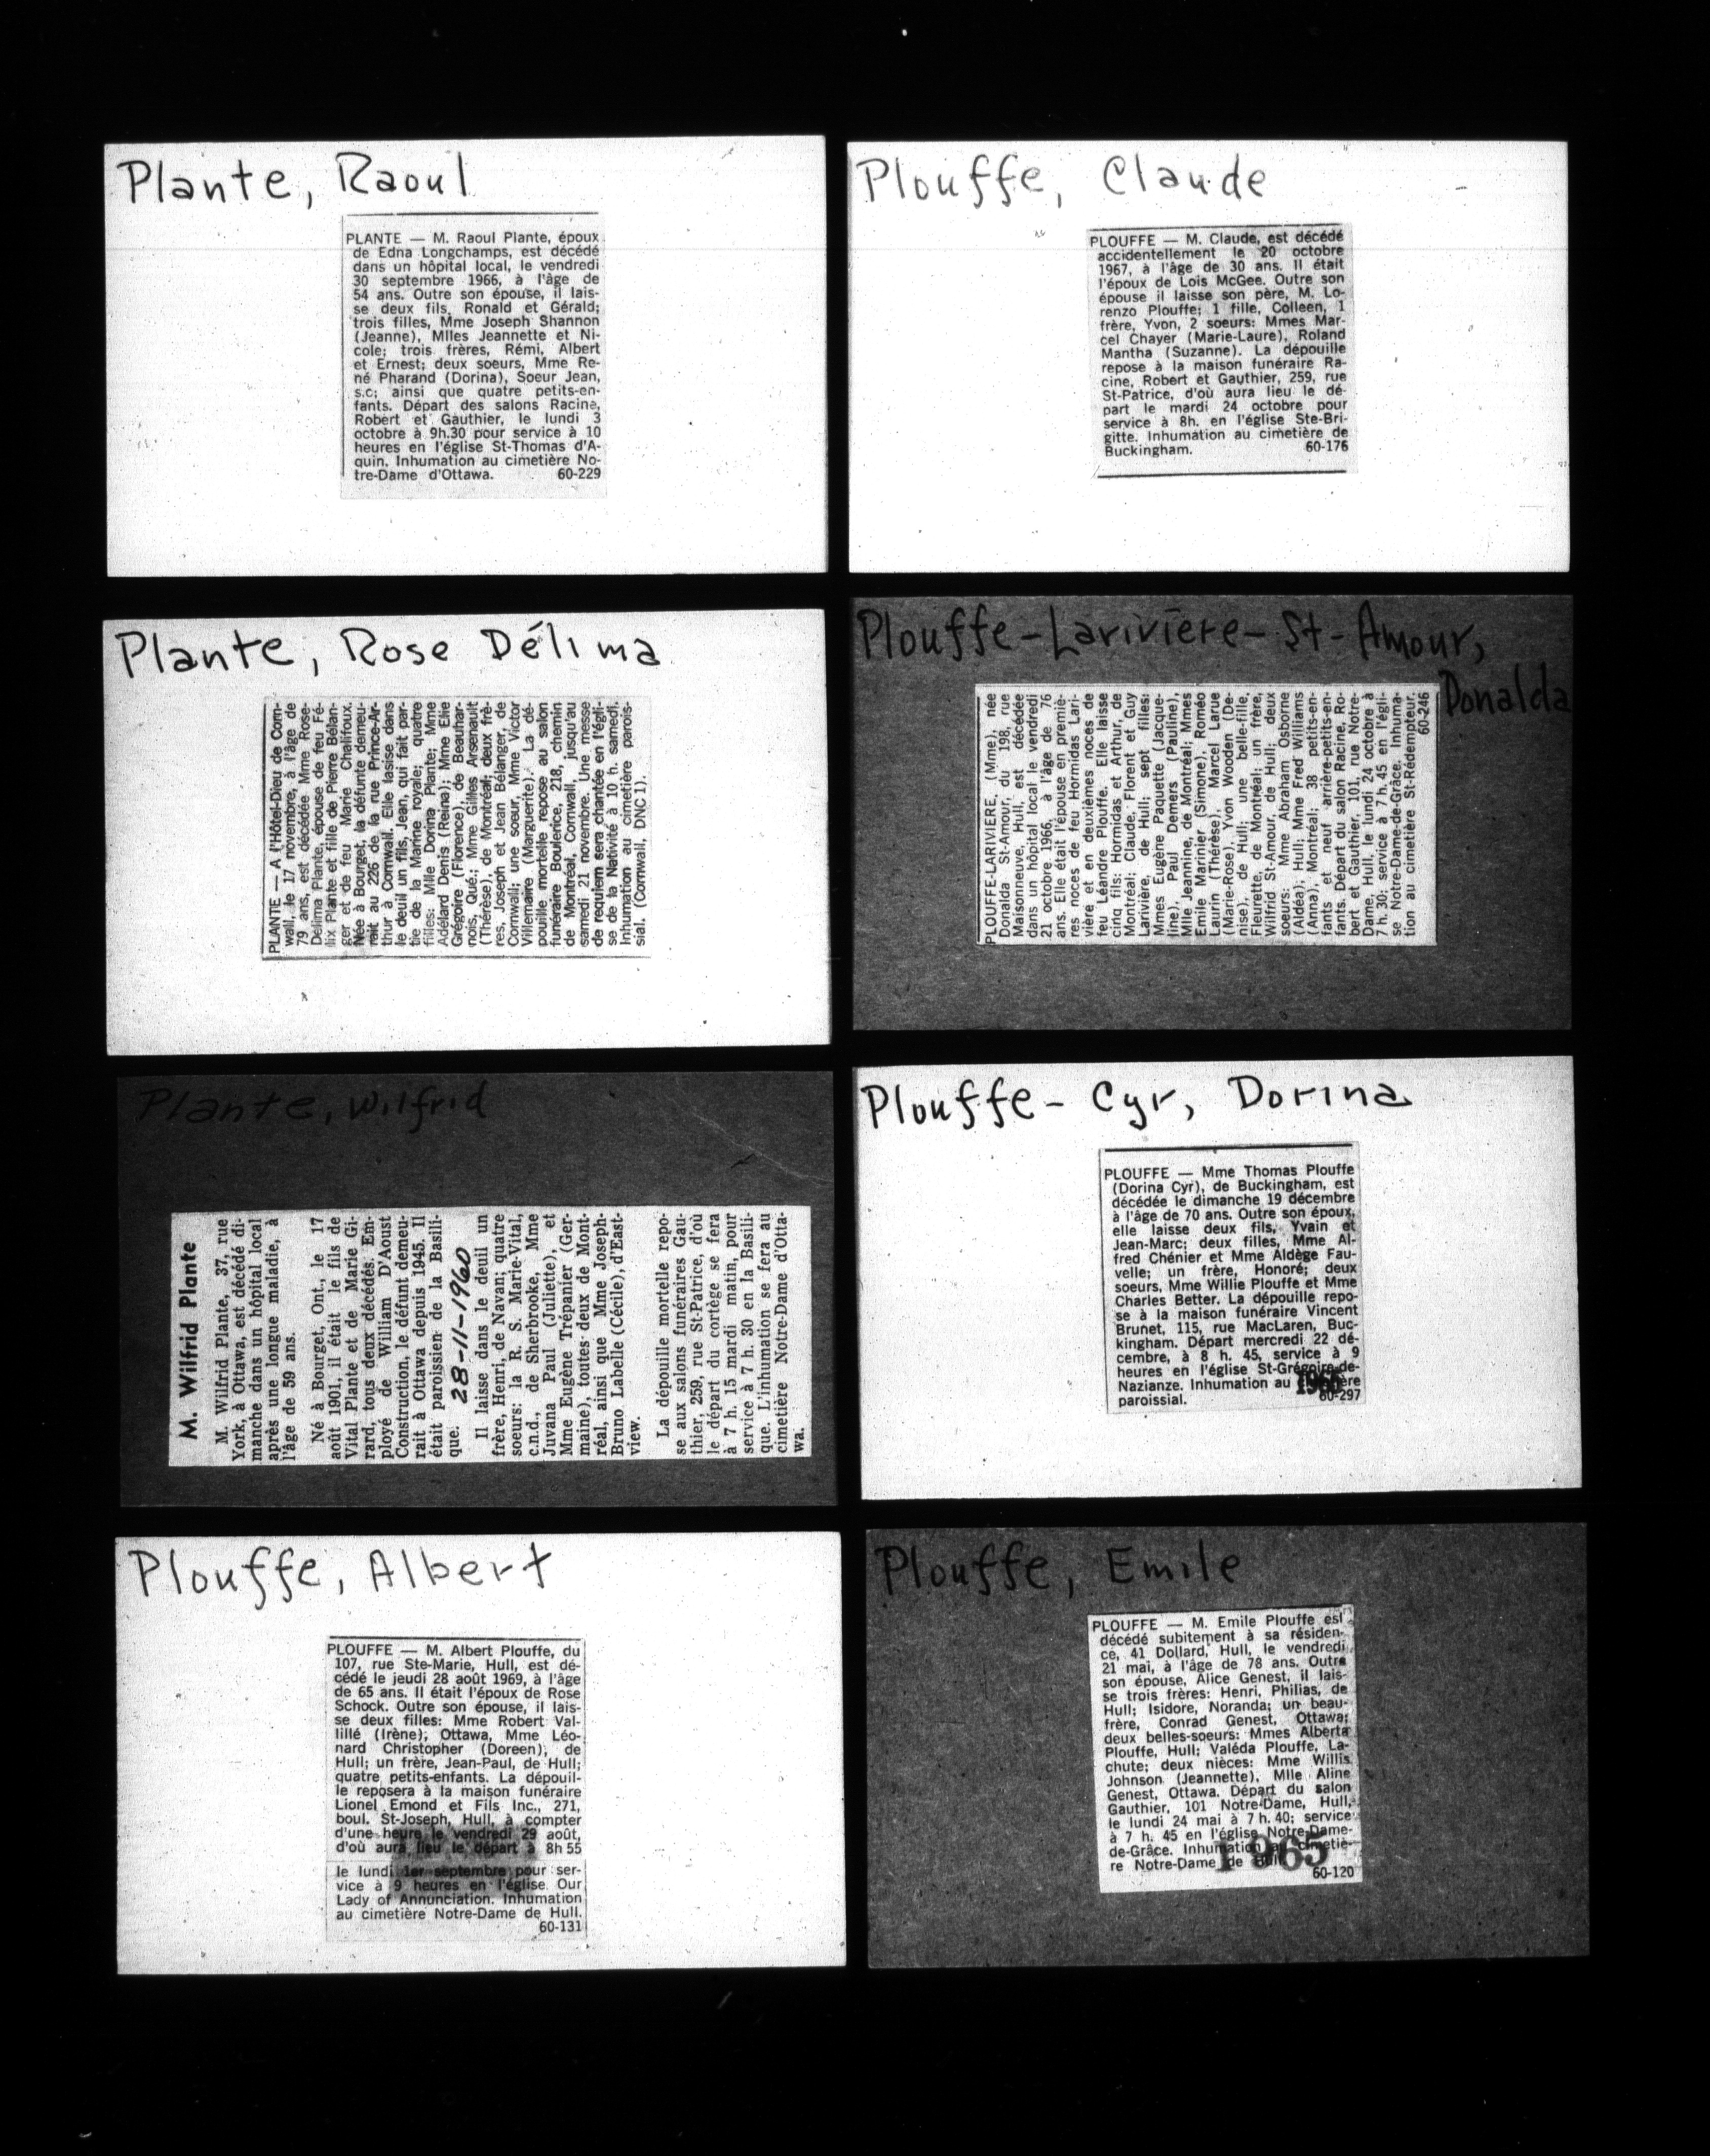 Plante, Raoul
PLANTE — M. Raoul Plante, époux
de Edna Longchamps, est décédé
dans un hôpital local, le vendredi
30 septembre 1966, à l'âge de
54 ans. Outre son épouse, il lais-
se deux fils, Ronald et Gérald;
trois filles, Mme Joseph Shannon
(Jeanne), Mlles Jeannette et Ni-
cole; trois frères, Rémi, Albert
et Ernest; deux soeurs, Mme Re-
né Pharand (Dorina), Soeur Jean,
s.c; ainsi que quatre petits-en-
fants. Départ des salons Racine,
Robert et Gauthier, le lundi 3
octobre à 9h.30 pour service à 10
heures en l'église St-Thomas d'A-
quin. Inhumation au cimetière No-
tre-Dame d'Ottawa. 60-229
Plante, Rose Délima
PLANTE — A l'Hôtel-Dieu de Corn-
wall, le 17 novembre, à l'âge de
79 ans, est décédée Mme Rose-
Delima Plante, épouse de feu Fé-
lix Plante et fille de Pierre Bélan-
ger et de feu Marie Chalifoux.
Née à Bourget, la défunte demeu-
rait au 226 de la rue Prince-Ar-
thur à Cornwall. Elle lasise dans
le deuil un fils, Jean, qui fait par-
tie de la Marine royale; quatre
filles: Mlle Dorina Plante; Mme
Adélard Denis (Reina); Mme Elie
Grégoire (Florence), de Beauhar-
nois, Qué.; Mme Gilles Arsenault
(Thérèse), de Montréal; deux frè-
res, Joseph et Jean Bélanger, de
Cornwall; une soeur, Mme Victor
Villemaire (Marguerite). La dé-
pouille mortelle repose au salon
funéraire Boulerice, 218, chemin
de Montréal, Cornwall, jusqu'au
samedi 21 novembre. Une messe
de requiem sera chantée en l'égli-
se de la Nativité à 10 h. samedi.
Inhumation au cimetière parois-
sial. (Cornwall, DNC1).
Plante, Wilfrid
M. Wilfrid Plante
M. Wilfrid Plante, 37, rue
York, à Ottawa, est décédé di-
manche dans un hôpital local
après une longue maladie, à
l'âge de 59 ans.
Né à Bourget, Ont., le 17
août 1901, il était le fils de
Vital Plante et de Marie Gi-
rard, tous deux décédés. Em-
ployé de William D'Aoust
Construction, le défunt demeu-
rait à Ottawa depuis 1945. Il
était paroissien de la Basili-
que. 28-11-1960
Il laisse dans le deuil un
frère, Henri, de Navan; quatre
soeurs: la R. S. Marie-Vital,
c.n.d., de Sherbrooke, Mme
Juvana Paul (Juliette), et
Mme Eugène Trépanier (Ger-
maine), toutes deux de Mont-
réal, ainsi que Mme Joseph-
Bruno Labelle (Cécile), d'East-
view.
La dépouille mortelle repo-
se aux salons funéraires Gau-
thier, 259, rue St-Patrice, d'où
le départ du cortège se fera
à 7 h. 15 mardi matin, pour
service à 7 h. 30 en la Basili-
que. L'inhumation se fera au
cimetière Notre-Dame d'Otta-
wa.
Plouffe, Albert
PLOUFFE — M. Albert Plouffe, du
107, rue Ste-Marie, Hull, est dé-
cédé le jeudi 28 août 1969, à l'âge
de 65 ans. Il était l'époux de Rose
Schock. Outre son épouse, il lais-
se deux filles: Mme Robert Val-
lillé (Irène); Ottawa, Mme Léo-
nard Christopher (Doreen), de
Hull; un frère, Jean-Paul, de Hull;
quatre petits-enfants. La dépouil-
le reposera à la maison funéraire
Lionel Emond et Fils Inc., 271,
boul. St-Joseph, Hull, à compter
d'une heure le vendredi 29 août,
d'où aura lieu le départ à 8h 55
le lundi 1er septembre pour ser-
vice à 9 heures en l'église Our
Lady of Annunciation. Inhumation
au cimetière Notre-Dame de Hull.
60-131
Plouffe, Claude
PLOUFFE — M. Claude, est décédé
accidentellement le 20 octobre
1967, à l'âge de 30 ans. Il était
l'époux de Lois McGee. Outre son
épouse il laisse son père, M. Lo-
renzo Plouffe; 1 fille, Colleen, 1
frère, Yvon, 2 soeurs: Mmes Mar-
cel Chayer (Marie-Laure), Roland
Mantha (Suzanne). La dépouille
repose à la maison funéraire Ra-
cine, Robert et Gauthier, 259, rue
St-Patrice, d'où aura lieu le dé-
part le mardi 24 octobre pour
service à 8h. en l'église Ste-Bri-
gitte. Inhumation au cimetière de
Buckingham. 60-176
Plouffe-Larivière-St-Amour,
Donalda
PLOUFFE-LARIVIERE, (Mme), née
Donalda St-Amour, du 198, rue
Maisonneuve, Hull, est décédée
dans un hôpital local le vendredi
21 octobre 1966, à l'âge de 76
ans. Elle était l'épouse en premiè-
res noces de feu Hormidas Lari-
vière et en deuxièmes noces de
feu Léandre Plouffe. Elle laisse
cinq fils: Hormidas et Arthur, de
Montréal; Claude, Florent et Guy
Larivière, de Hull; sept filles:
Mmes Eugène Paquette (Jacque-
line), Paul Demers (Pauline),
Mlle Jeannine, de Montréal; Mmes
Emile Marinier (Simone), Roméo
Laurin (Thérèse), Marcel Larue
(Marie-Rose), Yvon Wooden (De-
nise), de Hull; une belle-fille,
Fleurette, de Montréal; un frère,
Wilfrid St-Amour, de Hull; deux
soeurs: Mme Abraham Osborne
(Aldéa), Hull; Mme Fred Williams
(Anna), Montréal; 38 petits-en-
fants et neuf arrière-petits-en-
fants. Départ du salon Racine, Ro-
bert et Gauthier, 101, rue Notre-
Dame, Hull, le lundi 24 octobre à
7 h. 30; service à 7 h. 45 en l'égli-
se Notre-Dame-de-Grâce. Inhuma-
tion au cimetière St-Rédempteur.
60-246
Plouffe-Cyr, Dorina
PLOUFFE — Mme Thomas Plouffe
(Dorina Cyr), de Buckingham, est
décédée le dimanche 19 décembre
à l'âge de 70 ans. Outre son époux,
elle laisse deux fils, Yvain et
Jean-Marc; deux filles, Mme Al-
fred Chénier et Mme Aldège Fau-
velle; un frère, Honoré; deux
soeurs, Mme Willie Plouffe et Mme
Charles Better. La dépouille repo-
se à la maison funéraire Vincent
Brunet, 115, rue MacLaren, Buc-
kingham. Départ mercredi 22 dé-
cembre, à 8 h. 45, service à 9
heures en l'église St-Grégoire-de-
Nazianze. Inhumation au cimetière
paroissial. 60-297
Plouffe, Emile
PLOUFFE — M. Emile Plouffe est
décédé subitement à sa résiden-
ce, 41 Dollard, Hull, le vendredi
21 mai, à l'âge de 78 ans. Outre
son épouse, Alice Genest, il lais-
se trois frères: Henri, Philias, de
Hull; Isidore, Noranda; un beau-
frère, Conrad Genest, Ottawa;
deux belles-soeurs: Mmes Alberta
Plouffe, Hull; Valéda Plouffe, La-
chute; deux nièces: Mme Willis
Johnson (Jeannette), Mlle Aline
Genest, Ottawa. Départ du salon
Gauthier, 101 Notre-Dame, Hull,
le lundi 24 mai à 7 h. 40; service
à 7 h. 45 en l'église Notre-Dame-
de-Grâce. Inhumation au cimetiè-
re Notre-Dame de Hull.
1965
60-120